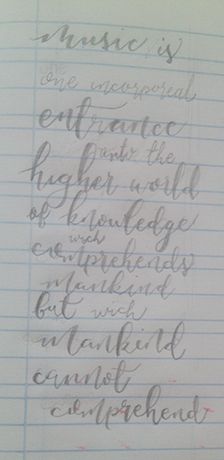 Music is
one incorporeal
entrance
into the
higher world
of knowledge
wich
comprehends
mankind
but wich
mankind
cannot
comprehend